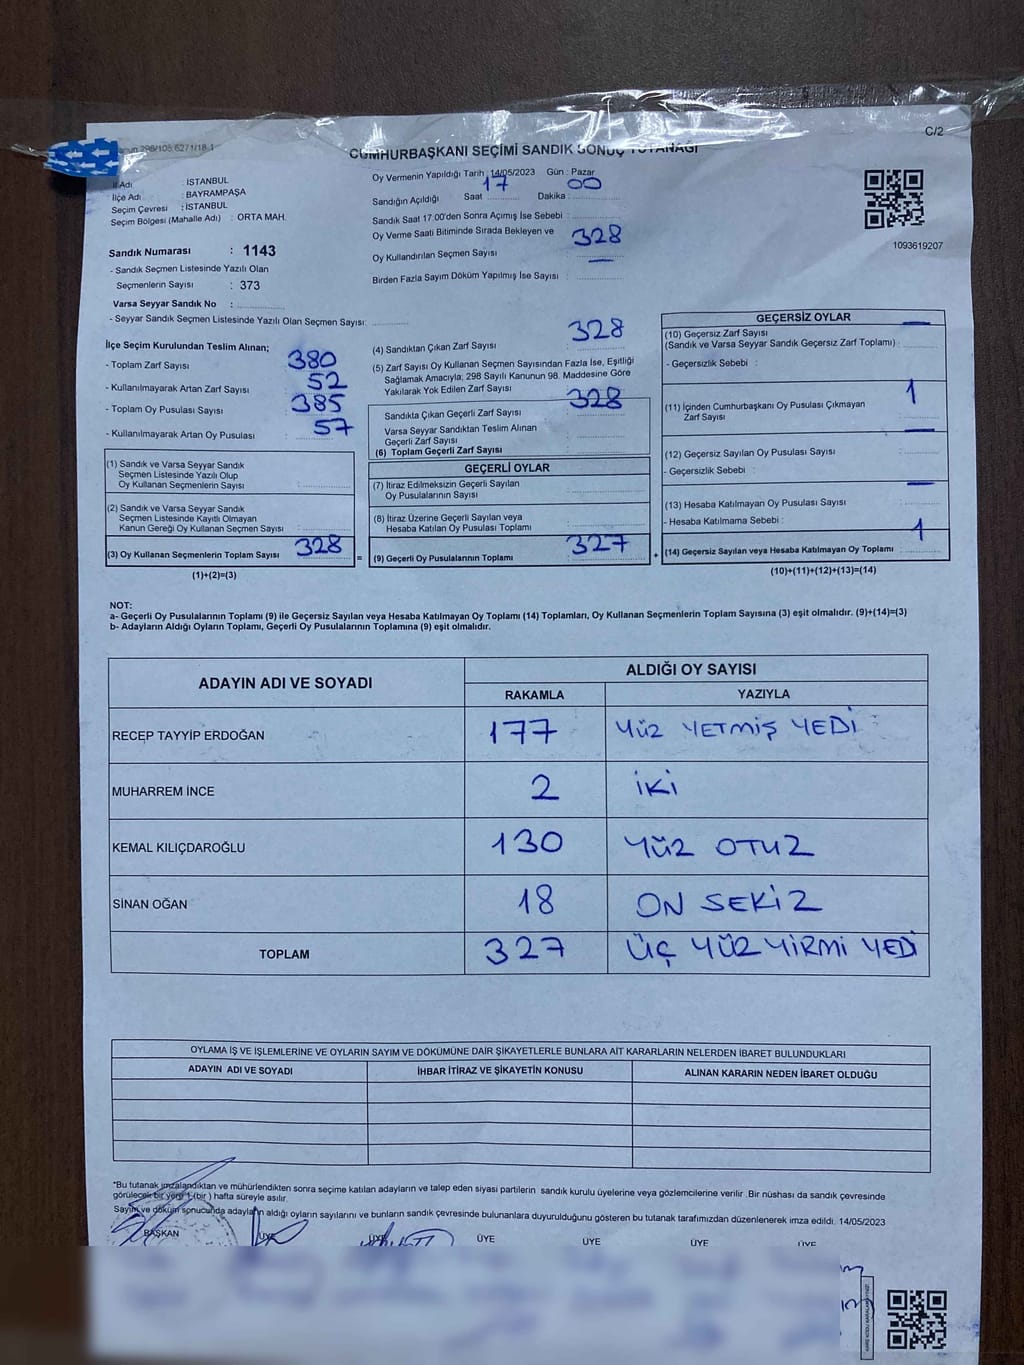 298/105;6271/18-1
C/2
CUMHURBAŞKANI SEÇİMİ SANDIK SONUÇ TUTANAĞI
İl Adı : İSTANBUL
İlçe Adı : BAYRAMPAŞA
Seçim Çevresi : İSTANBUL
Seçim Bölgesi (Mahalle Adı) : ORTA MAH.
Sandık Numarası : 1143
- Sandık Seçmen Listesinde Yazılı Olan
Seçmenlerin Sayısı : 373
Varsa Seyyar Sandık No :
- Seyyar Sandık Seçmen Listesinde Yazılı Olan Seçmen Sayısı:
Oy Vermenin Yapıldığı Tarih : 14/05/2023 Gün : Pazar
Sandığın Açıldığı Saat 17 Dakika : 00
Sandık Saat 17.00'den Sonra Açımış İse Sebebi :
Oy Verme Saati Bitiminde Sırada Bekleyen ve
Oy Kullandırılan Seçmen Sayısı : 328
Birden Fazla Sayım Döküm Yapılmış İse Sayısı : —
1093619207
İlçe Seçim Kurulundan Teslim Alınan;
- Toplam Zarf Sayısı : 380
- Kullanılmayarak Artan Zarf Sayısı : 52
- Toplam Oy Pusulası Sayısı : 385
- Kullanılmayarak Artan Oy Pusulası : 57
(1) Sandık ve Varsa Seyyar Sandık
Seçmen Listesinde Yazılı Olup
Oy Kullanan Seçmenlerin Sayısı :
(2) Sandık ve Varsa Seyyar Sandık
Seçmen Listesinde Kayıtlı Olmayan
Kanun Gereği Oy Kullanan Seçmen Sayısı :
(3) Oy Kullanan Seçmenlerin Toplam Sayısı : 328 =
(1)+(2)=(3)
(4) Sandıktan Çıkan Zarf Sayısı : 328
(5) Zarf Sayısı Oy Kullanan Seçmen Sayısından Fazla İse, Eşitliği
Sağlamak Amacıyla; 298 Sayılı Kanunun 98. Maddesine Göre
Yakılarak Yok Edilen Zarf Sayısı :
Sandıkta Çıkan Geçerli Zarf Sayısı : 328
Varsa Seyyar Sandıktan Teslim Alınan
Geçerli Zarf Sayısı :
(6) Toplam Geçerli Zarf Sayısı :
GEÇERLİ OYLAR
(7) İtiraz Edilmeksizin Geçerli Sayılan
Oy Pusulalarının Sayısı :
(8) İtiraz Üzerine Geçerli Sayılan veya
Hesaba Katılan Oy Pusulası Toplamı :
(9) Geçerli Oy Pusulalarının Toplamı : 327 +
GEÇERSİZ OYLAR
(10) Geçersiz Zarf Sayısı —
(Sandık ve Varsa Seyyar Sandık Geçersiz Zarf Toplamı) :
- Geçersizlik Sebebi :
(11) İçinden Cumhurbaşkanı Oy Pusulası Çıkmayan 1
Zarf Sayısı :
(12) Geçersiz Sayılan Oy Pusulası Sayısı : —
- Geçersizlik Sebebi :
(13) Hesaba Katılmayan Oy Pusulası Sayısı : —
- Hesaba Katılmama Sebebi :
(14) Geçersiz Sayılan veya Hesaba Katılmayan Oy Toplamı : 1
(10)+(11)+(12)+(13)=(14)
NOT:
a- Geçerli Oy Pusulalarının Toplamı (9) ile Geçersiz Sayılan veya Hesaba Katılmayan Oy Toplamı (14) Toplamları, Oy Kullanan Seçmenlerin Toplam Sayısına (3) eşit olmalıdır. (9)+(14)=(3)
b- Adayların Aldığı Oyların Toplamı, Geçerli Oy Pusulalarının Toplamına (9) eşit olmalıdır.
ADAYIN ADI VE SOYADI
ALDIĞI OY SAYISI
RAKAMLA YAZIYLA
RECEP TAYYİP ERDOĞAN 177 YÜZ YETMİŞ YEDİ
MUHARREM İNCE 2 İKİ
KEMAL KILIÇDAROĞLU 130 YÜZ OTUZ
SİNAN OĞAN 18 ON SEKİZ
TOPLAM 327 ÜÇ YÜZ YİRMİ YEDİ
OYLAMA İŞ VE İŞLEMLERİNE VE OYLARIN SAYIM VE DÖKÜMÜNE DAİR ŞİKAYETLERLE BUNLARA AİT KARARLARIN NELERDEN İBARET BULUNDUKLARI
ADAYIN ADI VE SOYADI İHBAR İTİRAZ VE ŞİKAYETİN KONUSU ALINAN KARARIN NEDEN İBARET OLDUĞU
*Bu tutanak imzalandıktan ve mühürlendikten sonra seçime katılan adayların ve talep eden siyasi partilerin sandık kurulu üyelerine veya gözlemcilerine verilir. Bir nüshası da sandık çevresinde
görülecek bir yere 1 (bir) hafta süreyle asılır.
Sayım ve döküm sonucunda adayların aldığı oyların sayılarını ve bunların sandık çevresinde bulunanlara duyurulduğunu gösteren bu tutanak tarafımızdan düzenlenerek imza edildi. 14/05/2023
BAŞKAN ÜYE ÜYE ÜYE ÜYE ÜYE ÜYE